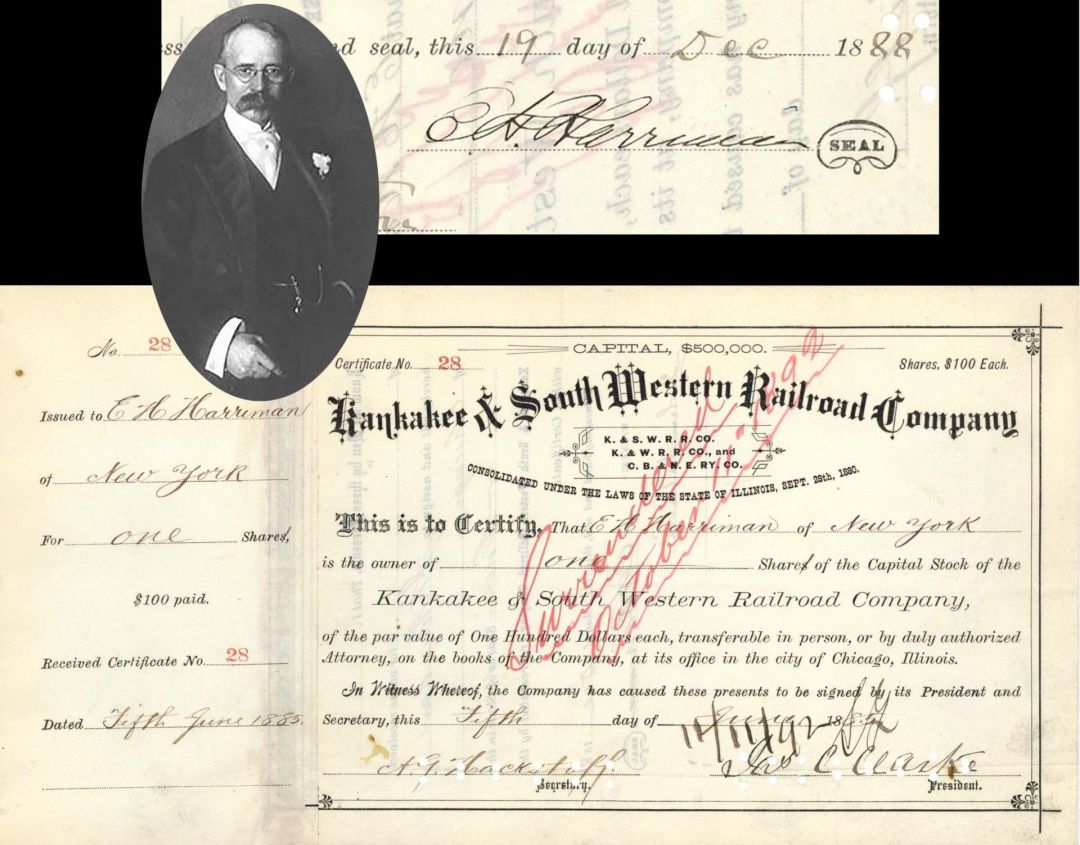 nd seal, this 19 day of Dec 1888
E H Harriman
SEAL
No. 28
Issued to E H Harriman
of New York
For one Share,
$100 paid.
Received Certificate No. 28
Dated Fifth June 1885
CAPITAL, $500,000.
Certificate No. 28
Shares, $100 Each.
Kankakee & South Western Railroad Company
K. & S. W. R. R. CO.
K. & W. R. R. CO., and
C. B. & N. E. RY. CO.
CONSOLIDATED UNDER THE LAWS OF THE STATE OF ILLINOIS, SEPT. 28th, 1880.
This is to Certify, That E H Harriman of New York
is the owner of one Share of the Capital Stock of the
Kankakee & South Western Railroad Company,
of the par value of One Hundred Dollars each, transferable in person, or by duly authorized
Attorney, on the books of the Company, at its office in the city of Chicago, Illinois.
In Witness Whereof, the Company has caused these presents to be signed by its President and
Secretary, this Fifth day of June 188
A. G. Hackstaff
Secretary.
Jas C Clarke
President.
Surrendered
October 1892
11/11/92